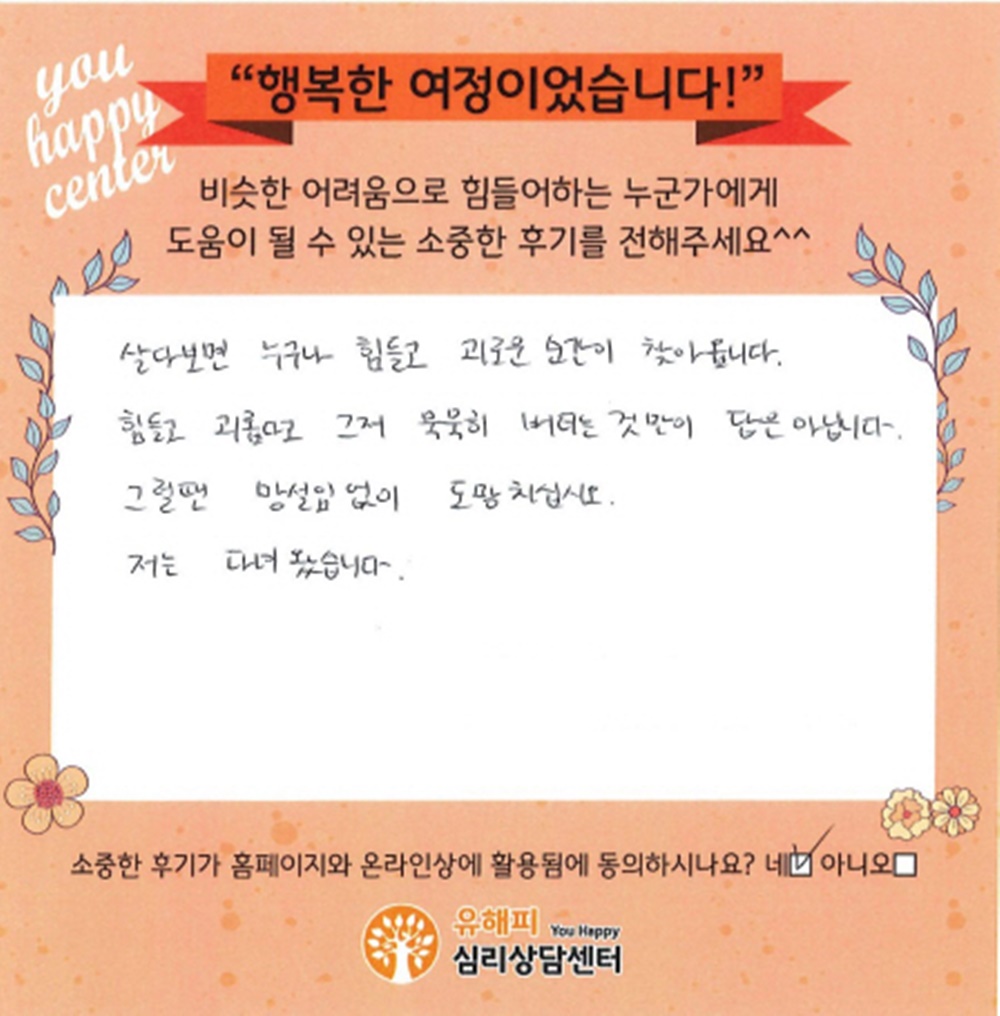 you
happy
center
“행복한 여정이었습니다!”
비슷한 어려움으로 힘들어하는 누군가에게
도움이 될 수 있는 소중한 후기를 전해주세요^^
살다보면 누구나 힘들고 괴로운 순간이 찾아옵니다.
힘들고 괴롭다고 그저 묵묵히 버티는 것만이 답은 아닙니다.
그럴땐 망설임 없이 도망치십시오.
저는 다녀 왔습니다.
소중한 후기가 홈페이지와 온라인상에 활용됨에 동의하시나요? 네☑ 아니오☐
유해피 You Happy
심리상담센터